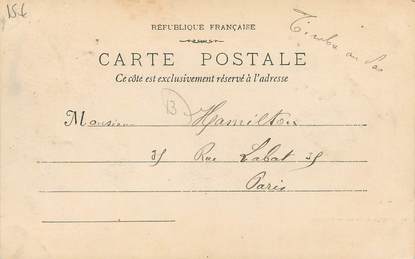 15€
RÉPUBLIQUE FRANÇAISE
Timbre au dos
CARTE POSTALE
Ce côté est exclusivement réservé à l'adresse
B
Monsieur Hamilton
35 Rue Labat 35
Paris